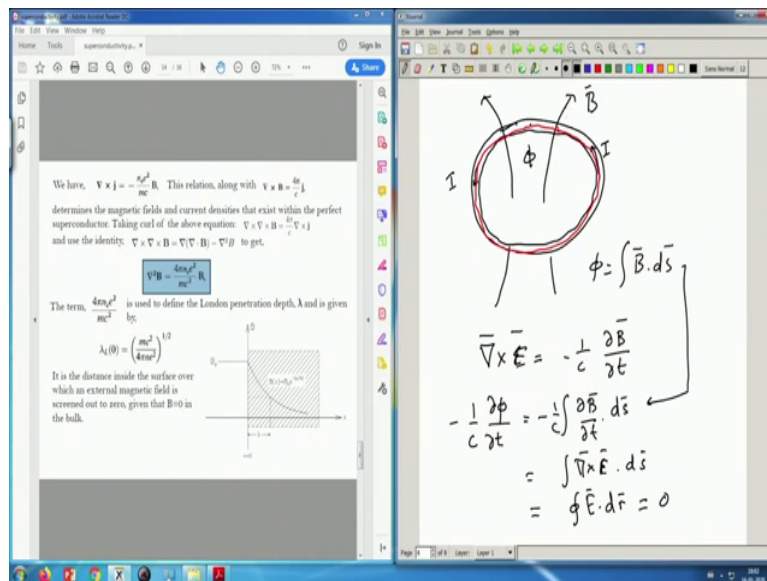 superconductivity.pdf - Adobe Acrobat Reader DC
File Edit View Window Help
Home Tools superconductivity.p... × Sign In
Share
We have, ∇ × j = − nₛe²/mc B, This relation, along with ∇ × B = 4π/c j,
determines the magnetic fields and current densities that exist within the perfect
superconductor. Taking curl of the above equation: ∇ × ∇ × B = 4π/c ∇ × j
and use the identity, ∇ × ∇ × B = ∇(∇ · B) − ∇²B to get,
∇²B = 4πnₛe²/mc² B,
The term, 4πnₛe²/mc² is used to define the London penetration depth, λ and is given
by,
λL(0) = (mc²/4πne²)^1/2
It is the distance inside the surface over
which an external magnetic field is
screened out to zero, given that B=0 in
the bulk.
B
λ
x
Xournal
File Edit View Journal Tools Options Help
Sans Normal 12
B̄
I
Φ
I
Φ = ∫ B̄ . ds̄
∇̄ × Ē = − 1/c ∂B̄/∂t
− 1/c ∂Φ/∂t = − 1/c ∫ ∂B̄/∂t . ds̄
= ∫ ∇̄ × Ē . ds̄
= ∮ Ē . dr̄ = 0
Page 8 of 9 Layer: Layer 1